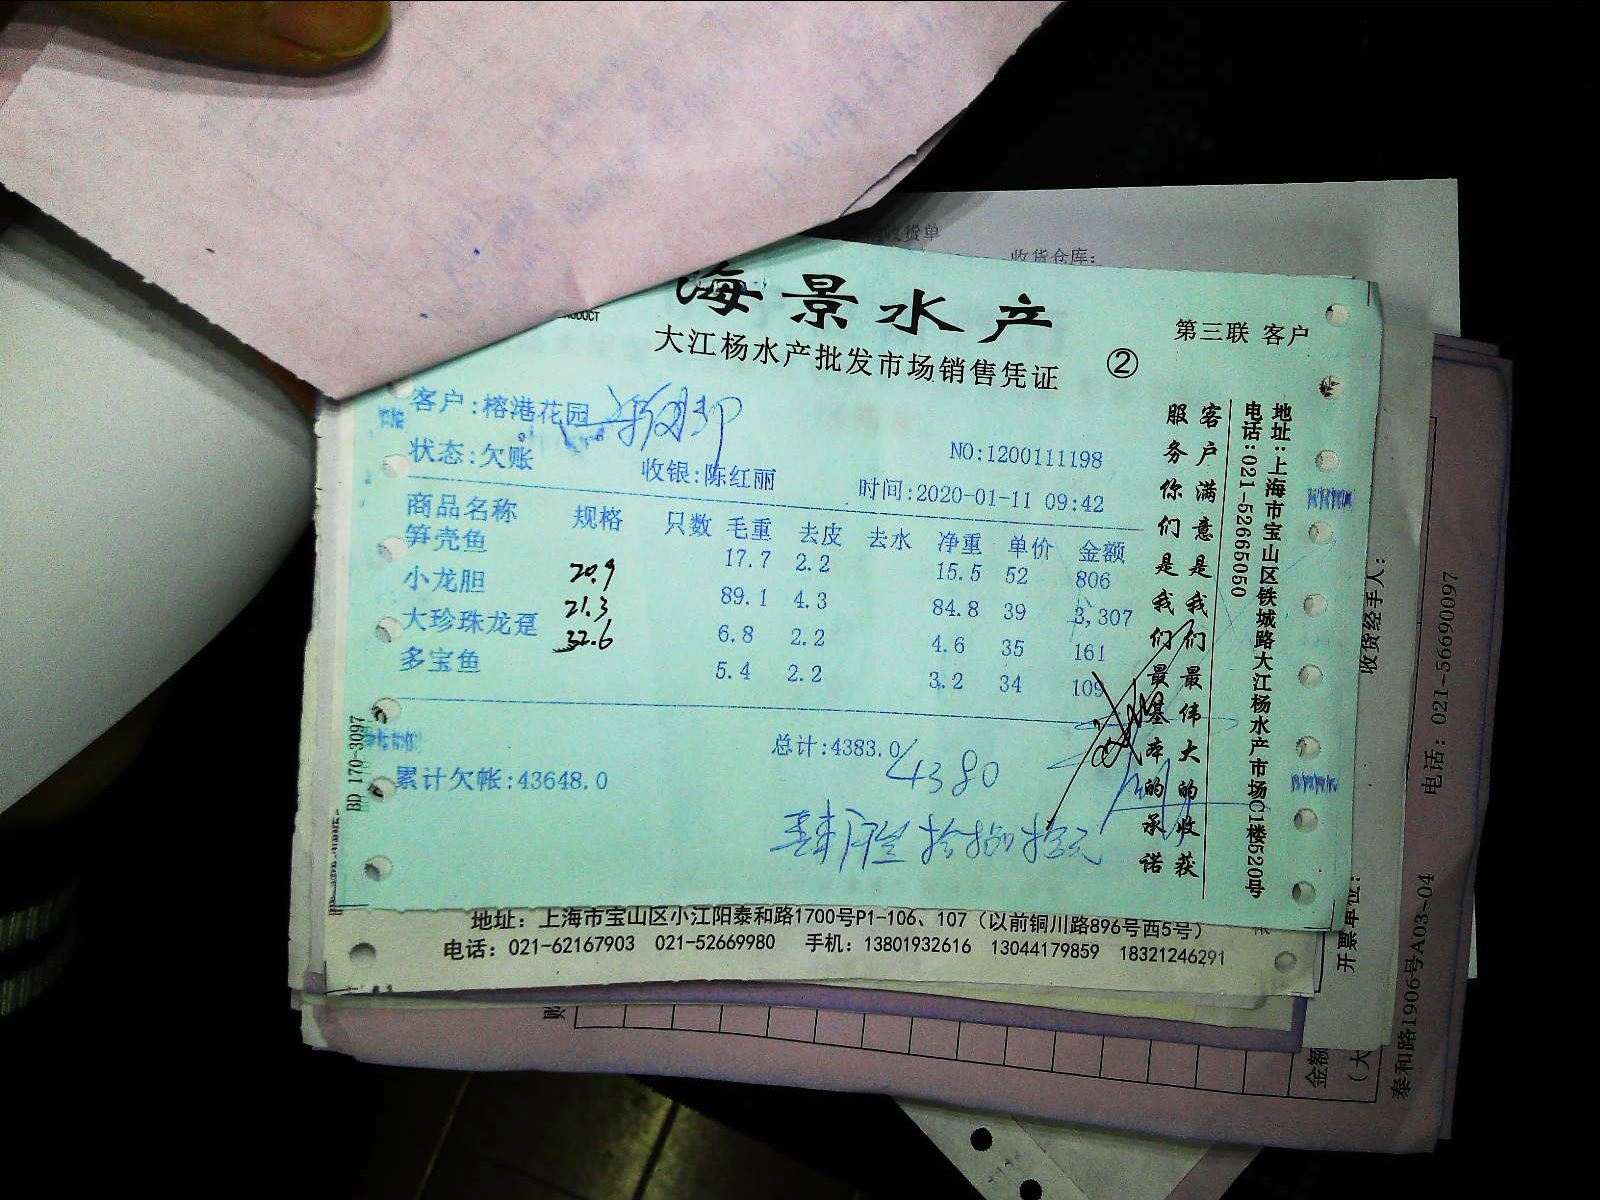 收货单
收货仓库：
海景水产
大江杨水产批发市场销售凭证 ②
第三联 客户
客户:榕港花园
状态:欠账 收银:陈红丽
NO:1200111198
时间:2020-01-11 09:42
商品名称 规格 只数 毛重 去皮 去水 净重 单价 金额
笋壳鱼 17.7 2.2 15.5 52 806
小龙胆 20.9 89.1 4.3 84.8 39 3,307
大珍珠龙趸 21.3 6.8 2.2 4.6 35 161
多宝鱼 32.6 5.4 2.2 3.2 34 109
总计:4383.0
4380
累计欠帐:43648.0
BD 170-3097
客户满意是我们最伟大的收获
服务你们是我们最基本的承诺
地址:上海市宝山区铁城路大江杨水产市场C1楼520号
电话:021-52665050
地址：上海市宝山区小江阳泰和路1700号P1-106、107（以前铜川路896号西5号）
电话：021-62167903 021-52669980 手机：13801932616 13044179859 18321246291
收货经手人：
开票单位：
电话：021-56690097
泰和路1906号A03-04
金额
（大